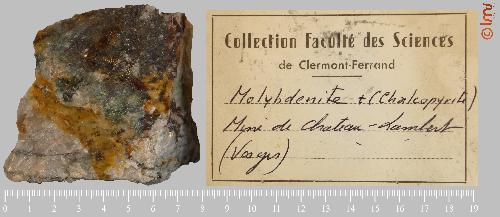 Collection Faculté des Sciences
de Clermont-Ferrand
Molybdenite + (Chalcopyrite)
Mine de Chateau-Lambert
(Vosges)
0 1 2 3 4 5 6 7 8 9 10 11 12 13 14 15 16 17 18 19
© lmv